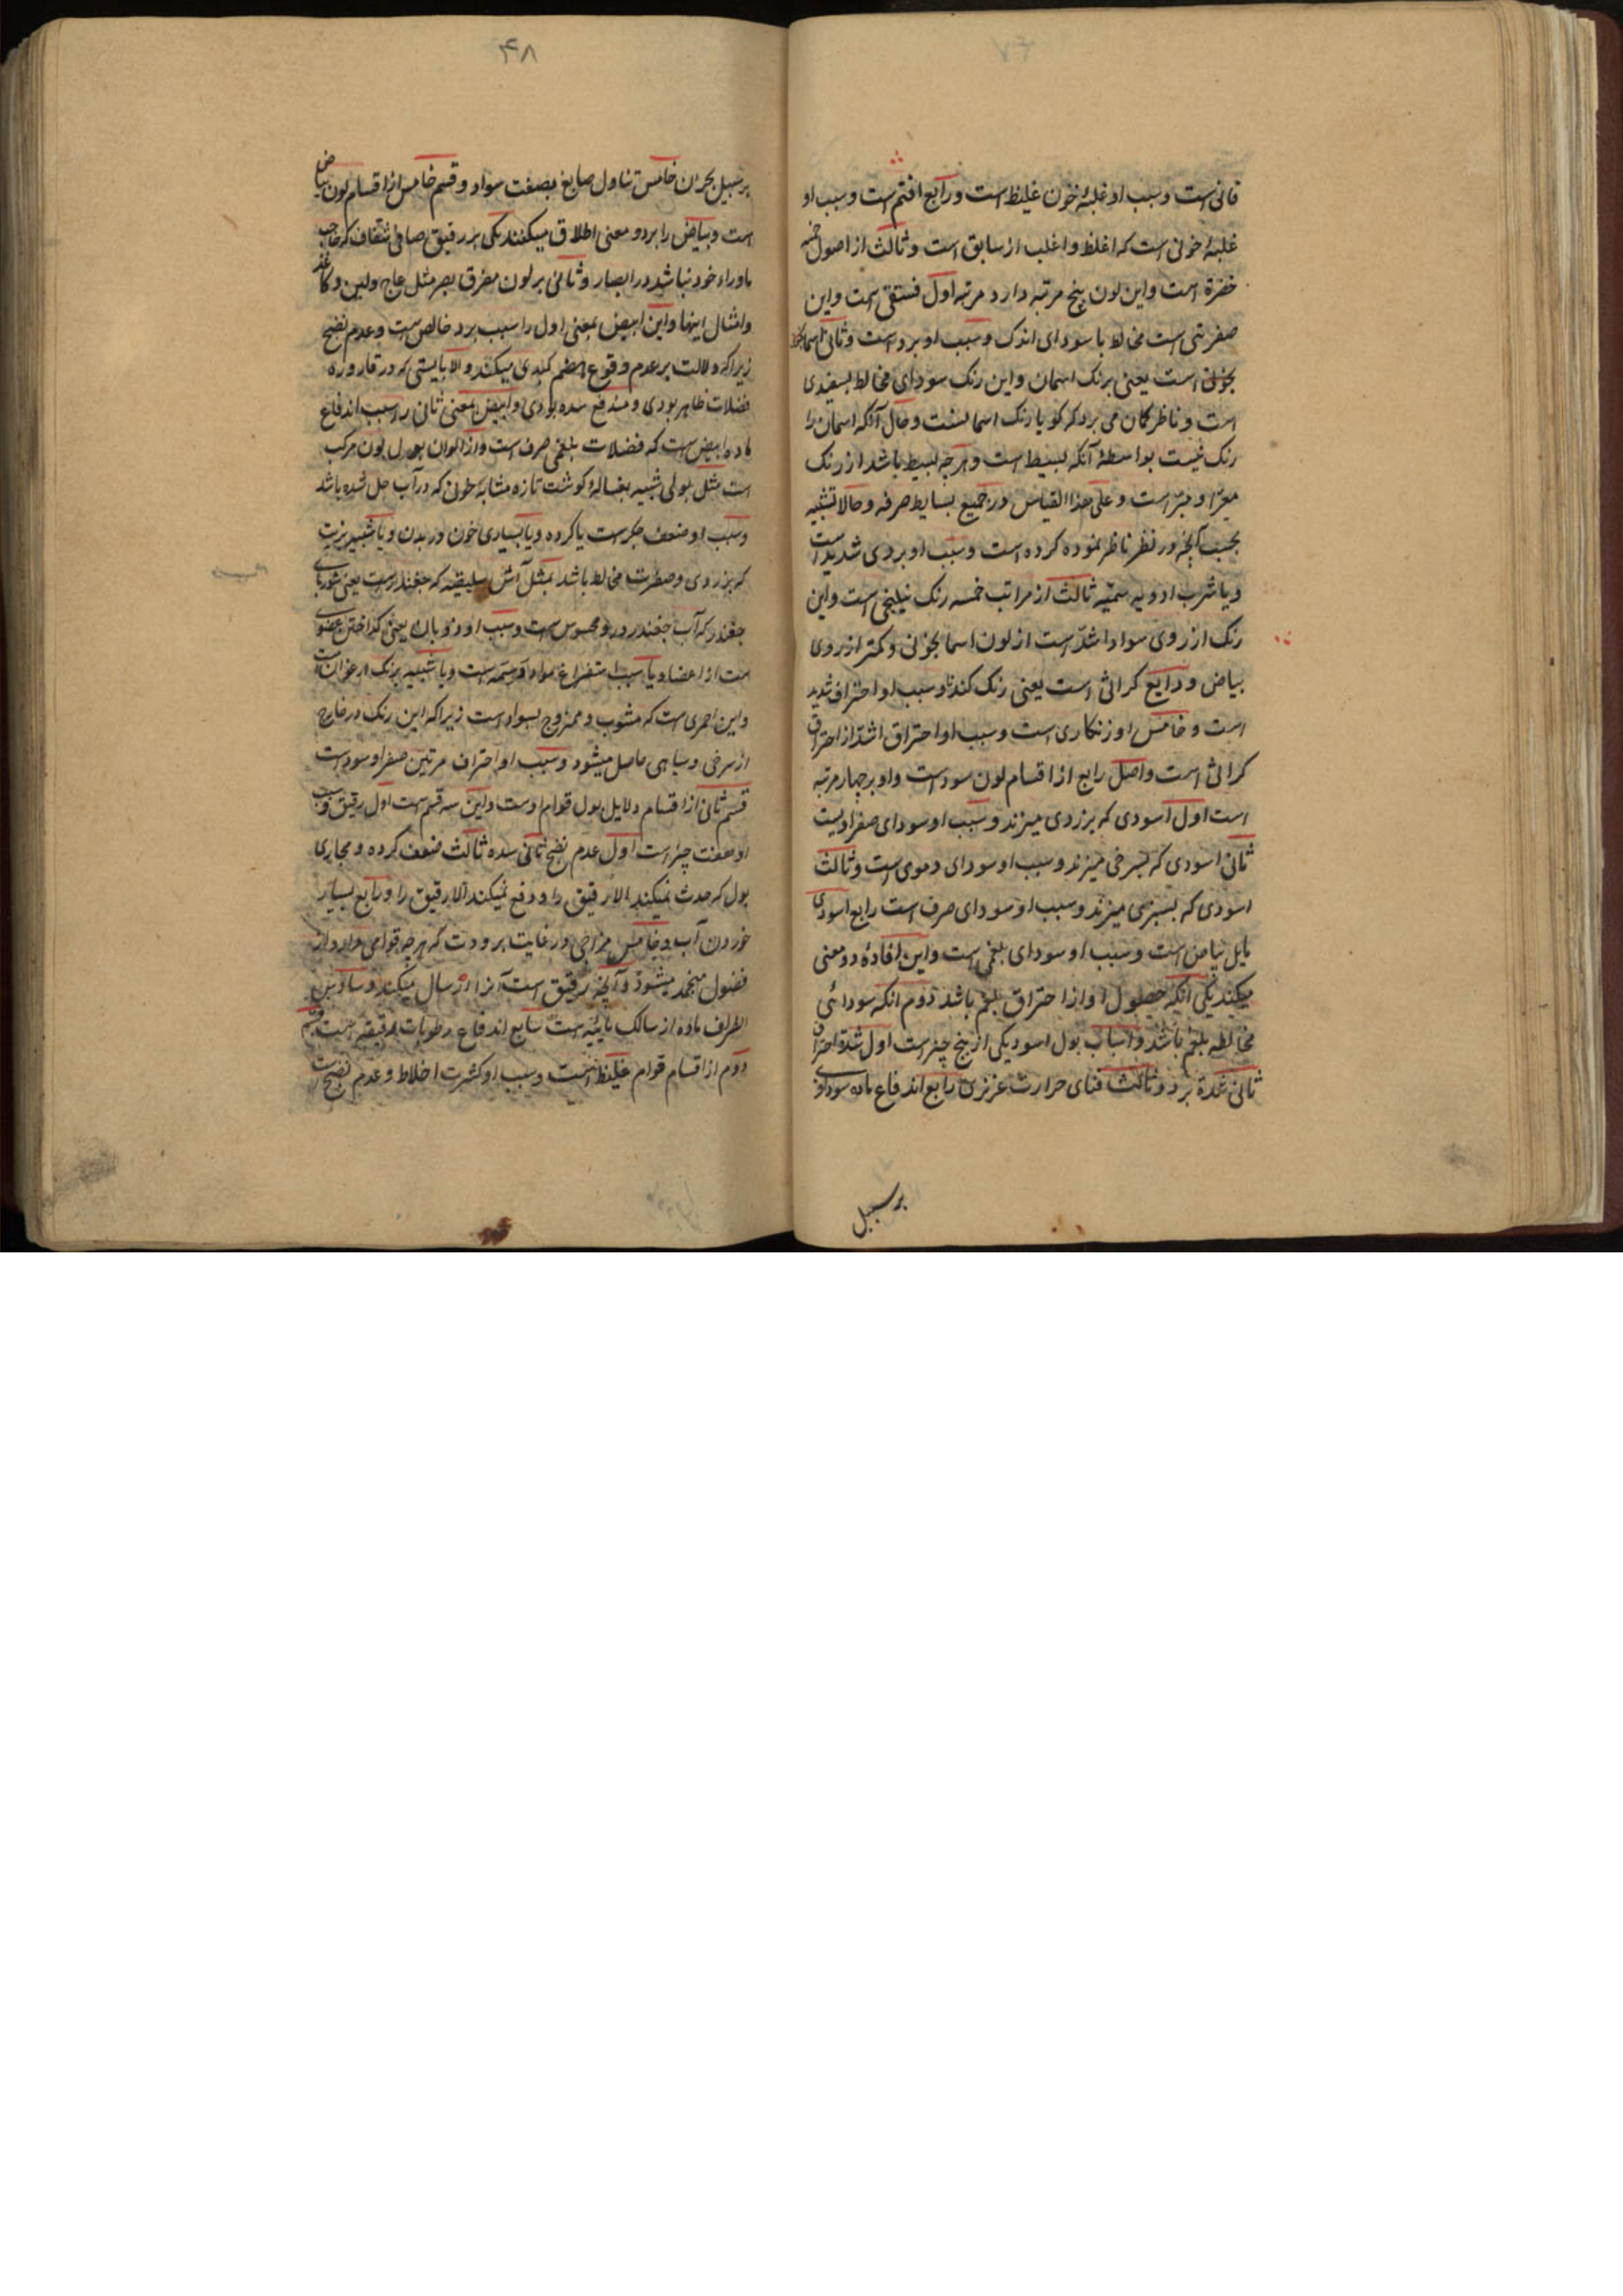 قانی است و سبب او غلبهٔ خون غلیظ است و رابع اقتم است و سبب او
غلبهٔ خونی است که اغلظ و اغلب از سابق است و ثالث از اصول خمسه
خضرة است و این لون پنج مرتبه دارد مرتبه اول فستقی است و این
صفرتی است مخالط با سودای اندک و سبب او برد است و ثانی اسما
نجونی است یعنی برنک اسمان و این رنک سودای مخالط بسفیدی
است و ناظر کمان می برد که کویا رنک اسمانست و حال آنکه اسمان را
رنک نیست بواسطهٔ آنکه بسیط است و هر چه بسیط باشد از رنک
معرا و مبرا است و علی هذا القیاس در جمیع بسایط صرفه و حالا تشبیه
بحسب آنچه در نظر ناظر نموده کرده است و سبب او بردی شدید است
و یا شرب ادویه سمیّه ثالث از مراتب خمسه رنک نیلنجی است و این
رنک از روی سواد اشدّ است از لون اسمانجونی و کمتر از روی
بیاض و رابع کراثی است یعنی رنک کندنا و سبب او احتراف شدید
است و خامس او زنکاری است و سبب او احتراق اشد از احتراق
کراثی است و اصل رابع از اقسام لون سود است و او بر چهار مرتبه
است اول اسودی که بزردی میزند و سبب او سودای صفراویست
ثانی اسودی که بسرخی میزند و سبب او سودای دموی است و ثالث
اسودی که بسبزی میزند و سبب او سودای صرف است رابع اسودی
مایل ببیاض است و سبب او سودای بلغمی است و این افادهٔ دو معنی
میکند یکی انکه حصول او از احتراق بلغم باشد دوم انکه سودائی
مخالطه بلغم باشد و اسباب بول اسود یکی از پنج چیز است اول شدة احتراق
ثانی شدة برد و ثالث فنای حرارت غریزی رابع اندفاع ماده سوداوی
بر سبیل
۴۸
بر سبیل بحران خامس تناول صابغ بصفت سواد و قسم خامس از اقسام لون بیاض
است و بیاض را بر دو معنی اطلاق میکنند یکی بر رقیق صافی شفاف که حاجب
ماوراء خود نباشد در ابصار و ثانی بر لون مفرق بصر مثل عاج و لبن و کاغذ
و امثال اینها و این ابیض بمعنی اول را سبب برد خالص است و عدم نضج
زیرا که دلالت بر عدم وقوع هضم کبدی میکند و الا بایستی که در قاروره
فضلات ظاهر بودی و مندفع شده بودی و ابیض بمعنی ثانی را سبب اندفاع
ماده ابیض است که فضلات بلغمی صرف است و از الوان بول لون مرکب
است مثل بولی شبیه بغسالهٔ کوشت تازه مشابه خون که در آب حل شده باشد
و سبب او ضعف جکر است یا کرده و یا بسیاری خون در بدن و یا شبیه بزیت
که بزردی و خضرت مخالط باشد بمثل آش سلیقیه که چغندر است یعنی شوربای
چغندر که آب چغندر در و محسوس است و سبب او ذوبان یعنی کداختن عضوی
است از اعضا و یا سبب استفراغ مواد دسمه است و یا شبیه برنک ارغوان است
و این احمری است که مشوب و ممزوج بسواد است زیرا که این رنک در خارج
از سرخی و سیاهی حاصل میشود و سبب او احتراف مرتین صفرا و سود است
قسم ثانی از اقسام دلایل بول قوام اوست و این سه قسم است اول رقیق و سبب
او هفت چیز است اول عدم نضج ثانی سده ثالث ضعف کرده و مجاری
بول که حدث نمیکند الا رقیق را و دفع نمیکند الا رقیق را و رابع بسیار
خوردن آب و خامس مزاجی در غایت برودت که هر چه قوامی دارد از
فضول منجمد میشود و آنچه رقیق است آنرا ارسال میکند و سادس
انطراف ماده از مسالک بایسه است سابع اندفاع رطوبات رقیقه است قسم
دوم از اقسام قوام غلیظ است و سبب او کثرت اخلاط و عدم نضج است